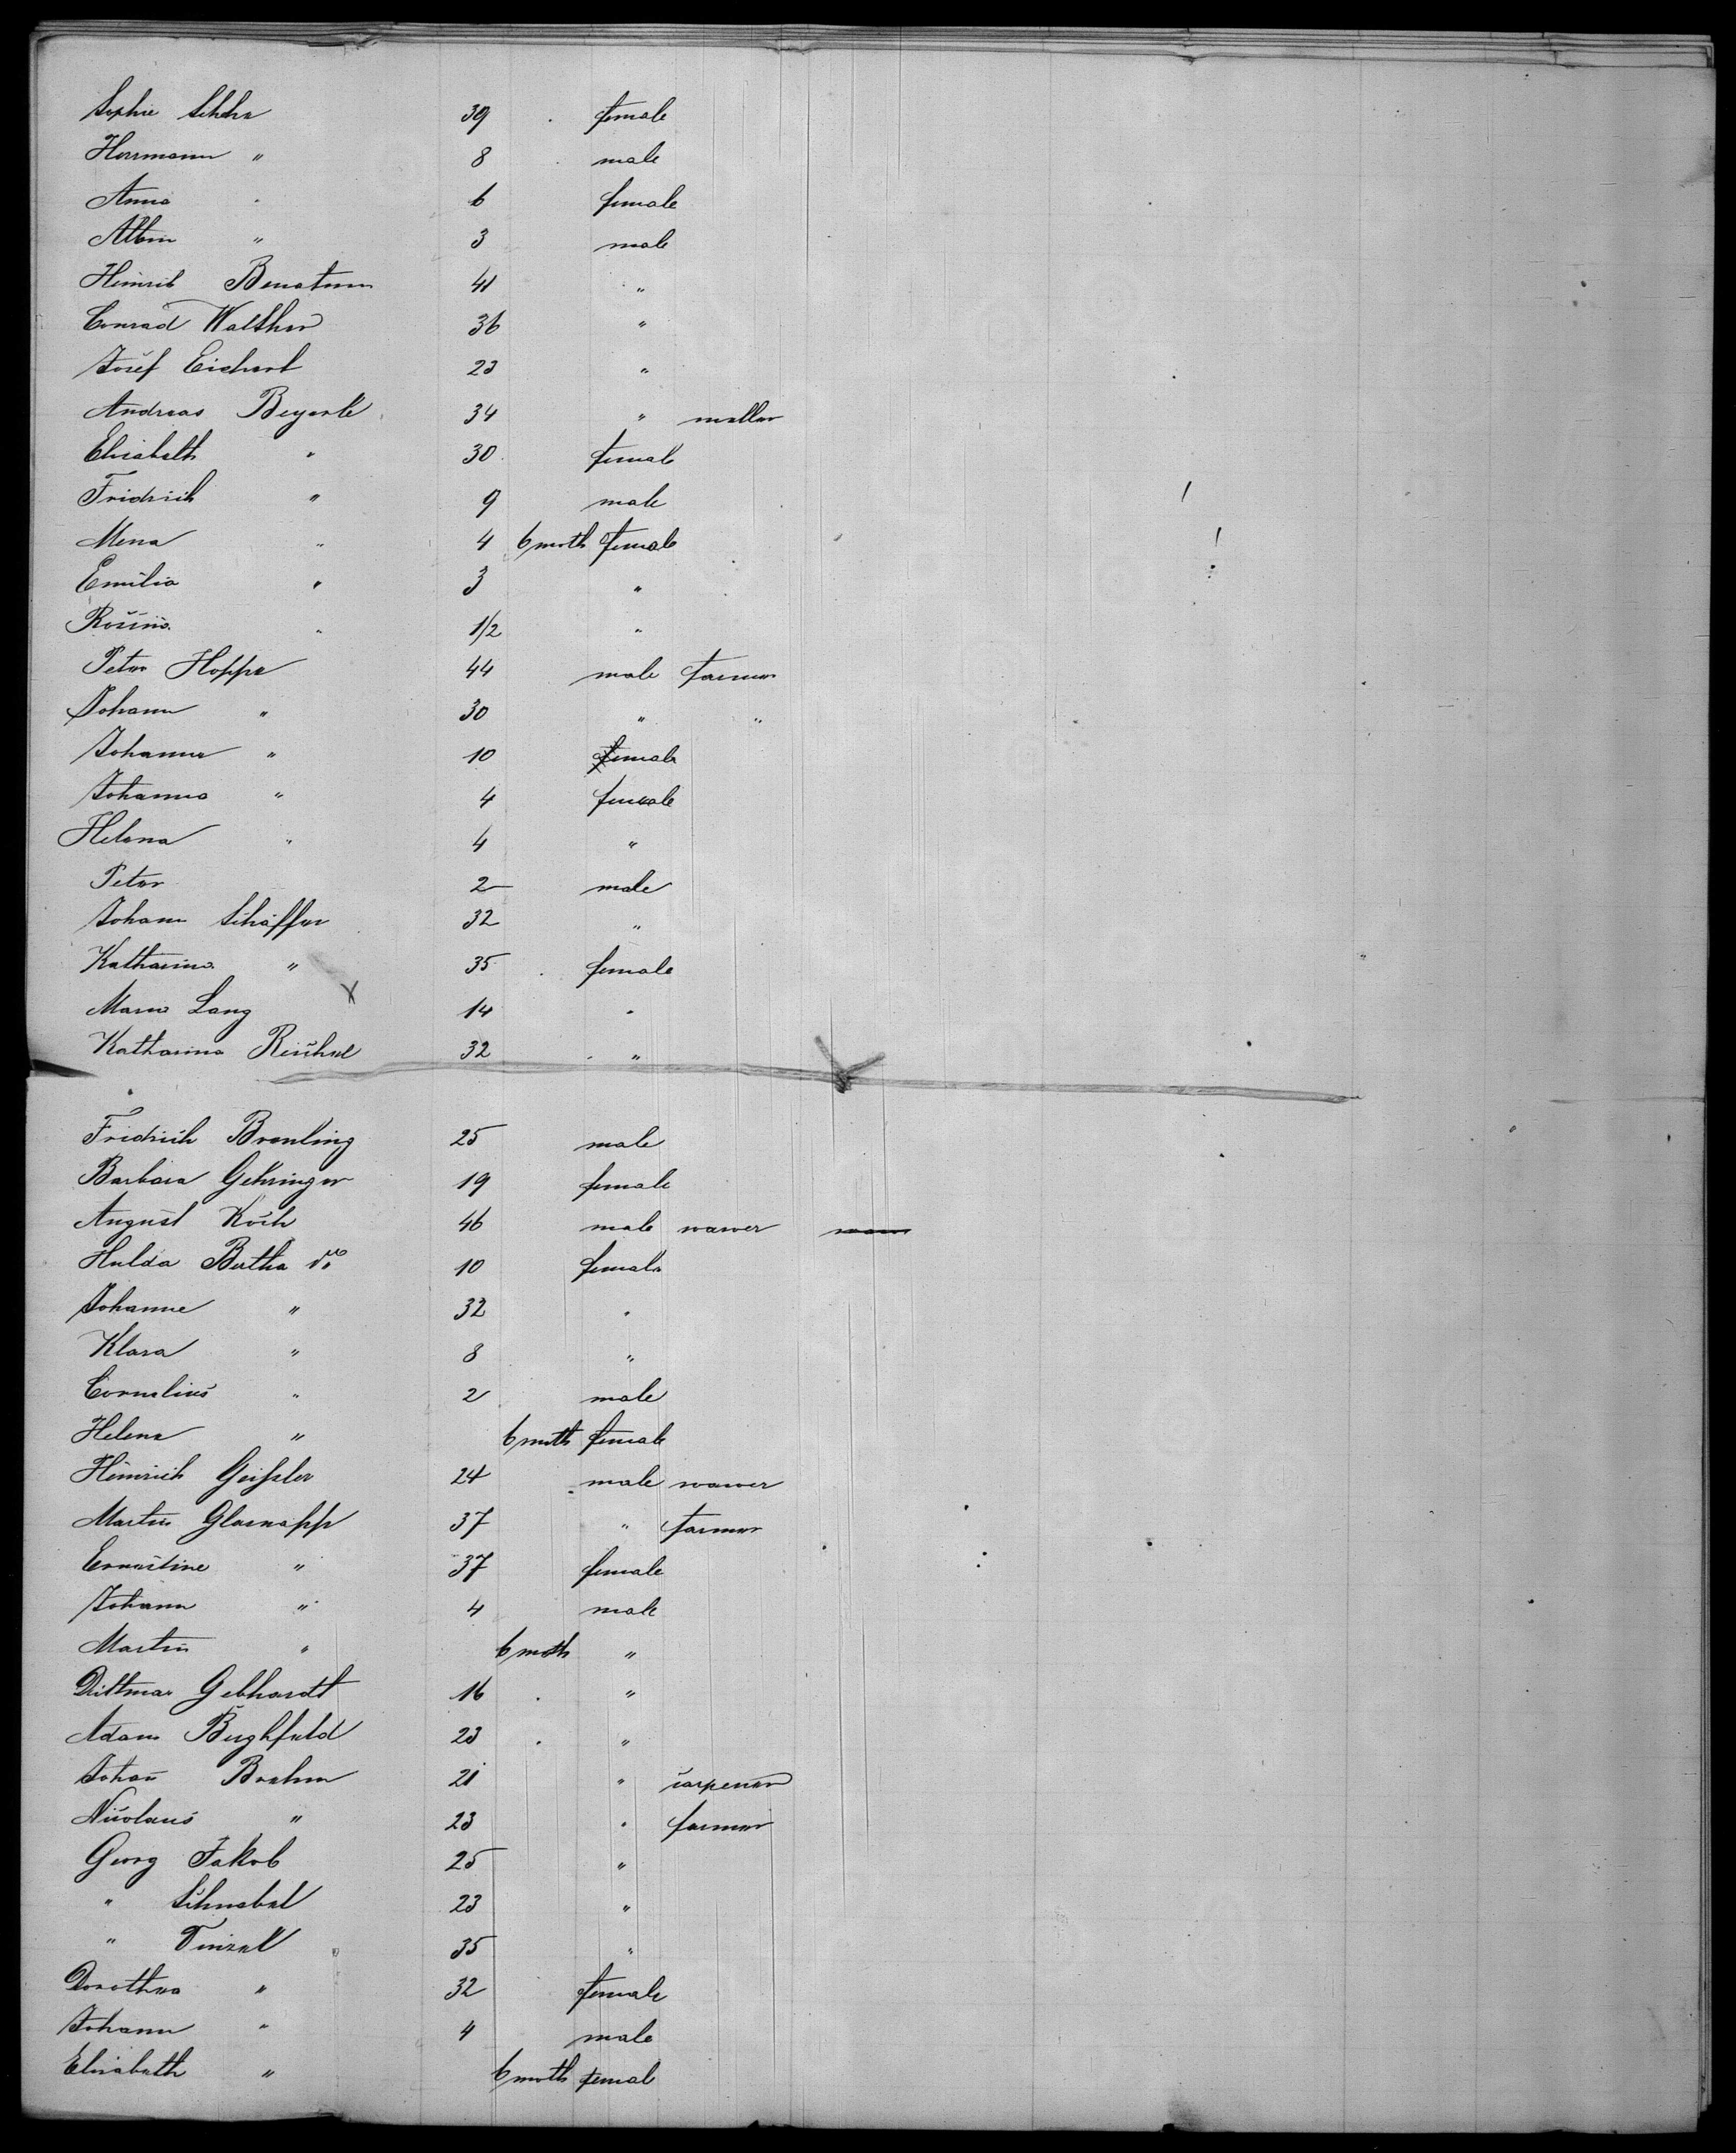 Sophie 39 female
Herrmann " 8 male
Anna " 6 female
Albin " 3 male
Heinrich 41 "
Conrad Walther 36 "
Josef Eichert 23 "
Andreas Beyerle 34 " miller
Elisabeth " 30 female
Fridrich " 9 male
Mena " 4 6 moth female
Emilia " 3 "
Rosina " 1/2 "
Peter Hoppe 44 male farmer
Johann " 30 " "
Johanna " 10 female
Johanna " 4 female
Helena " 4 "
Peter 2 male
Johann Schäffer 32 "
Katharina " 35 female
Maria Lang 14 "
Katharina Reichel 32 "
Fridrich Brenling 25 male
Barbara Gehringer 19 female
August Koch 46 male wawer
Hulda Bertha do 10 female
Johanne " 32 "
Klara " 8 "
Cornelius " 2 male
Helene " 6 moth female
Heinrich Geißler 24 male wawer
Martin Glasnapp 37 " farmer
Ernestine " 37 female
Johann " 4 male
Martin " 6 moth "
Dittmar Gebhardt 16 "
Adam Berghfeld 23 "
Johan Brehm 21 " carpenter
Nicolaus " 23 " farmer
Georg Jakob 25 "
" Schnabel 23 "
" 35 "
Dorothea " 32 female
Johann " 4 male
Elisabeth " 6 moth female